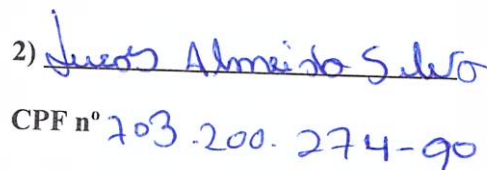 2) Lucas Almeida Silva
CPF nº 703.200.274-90